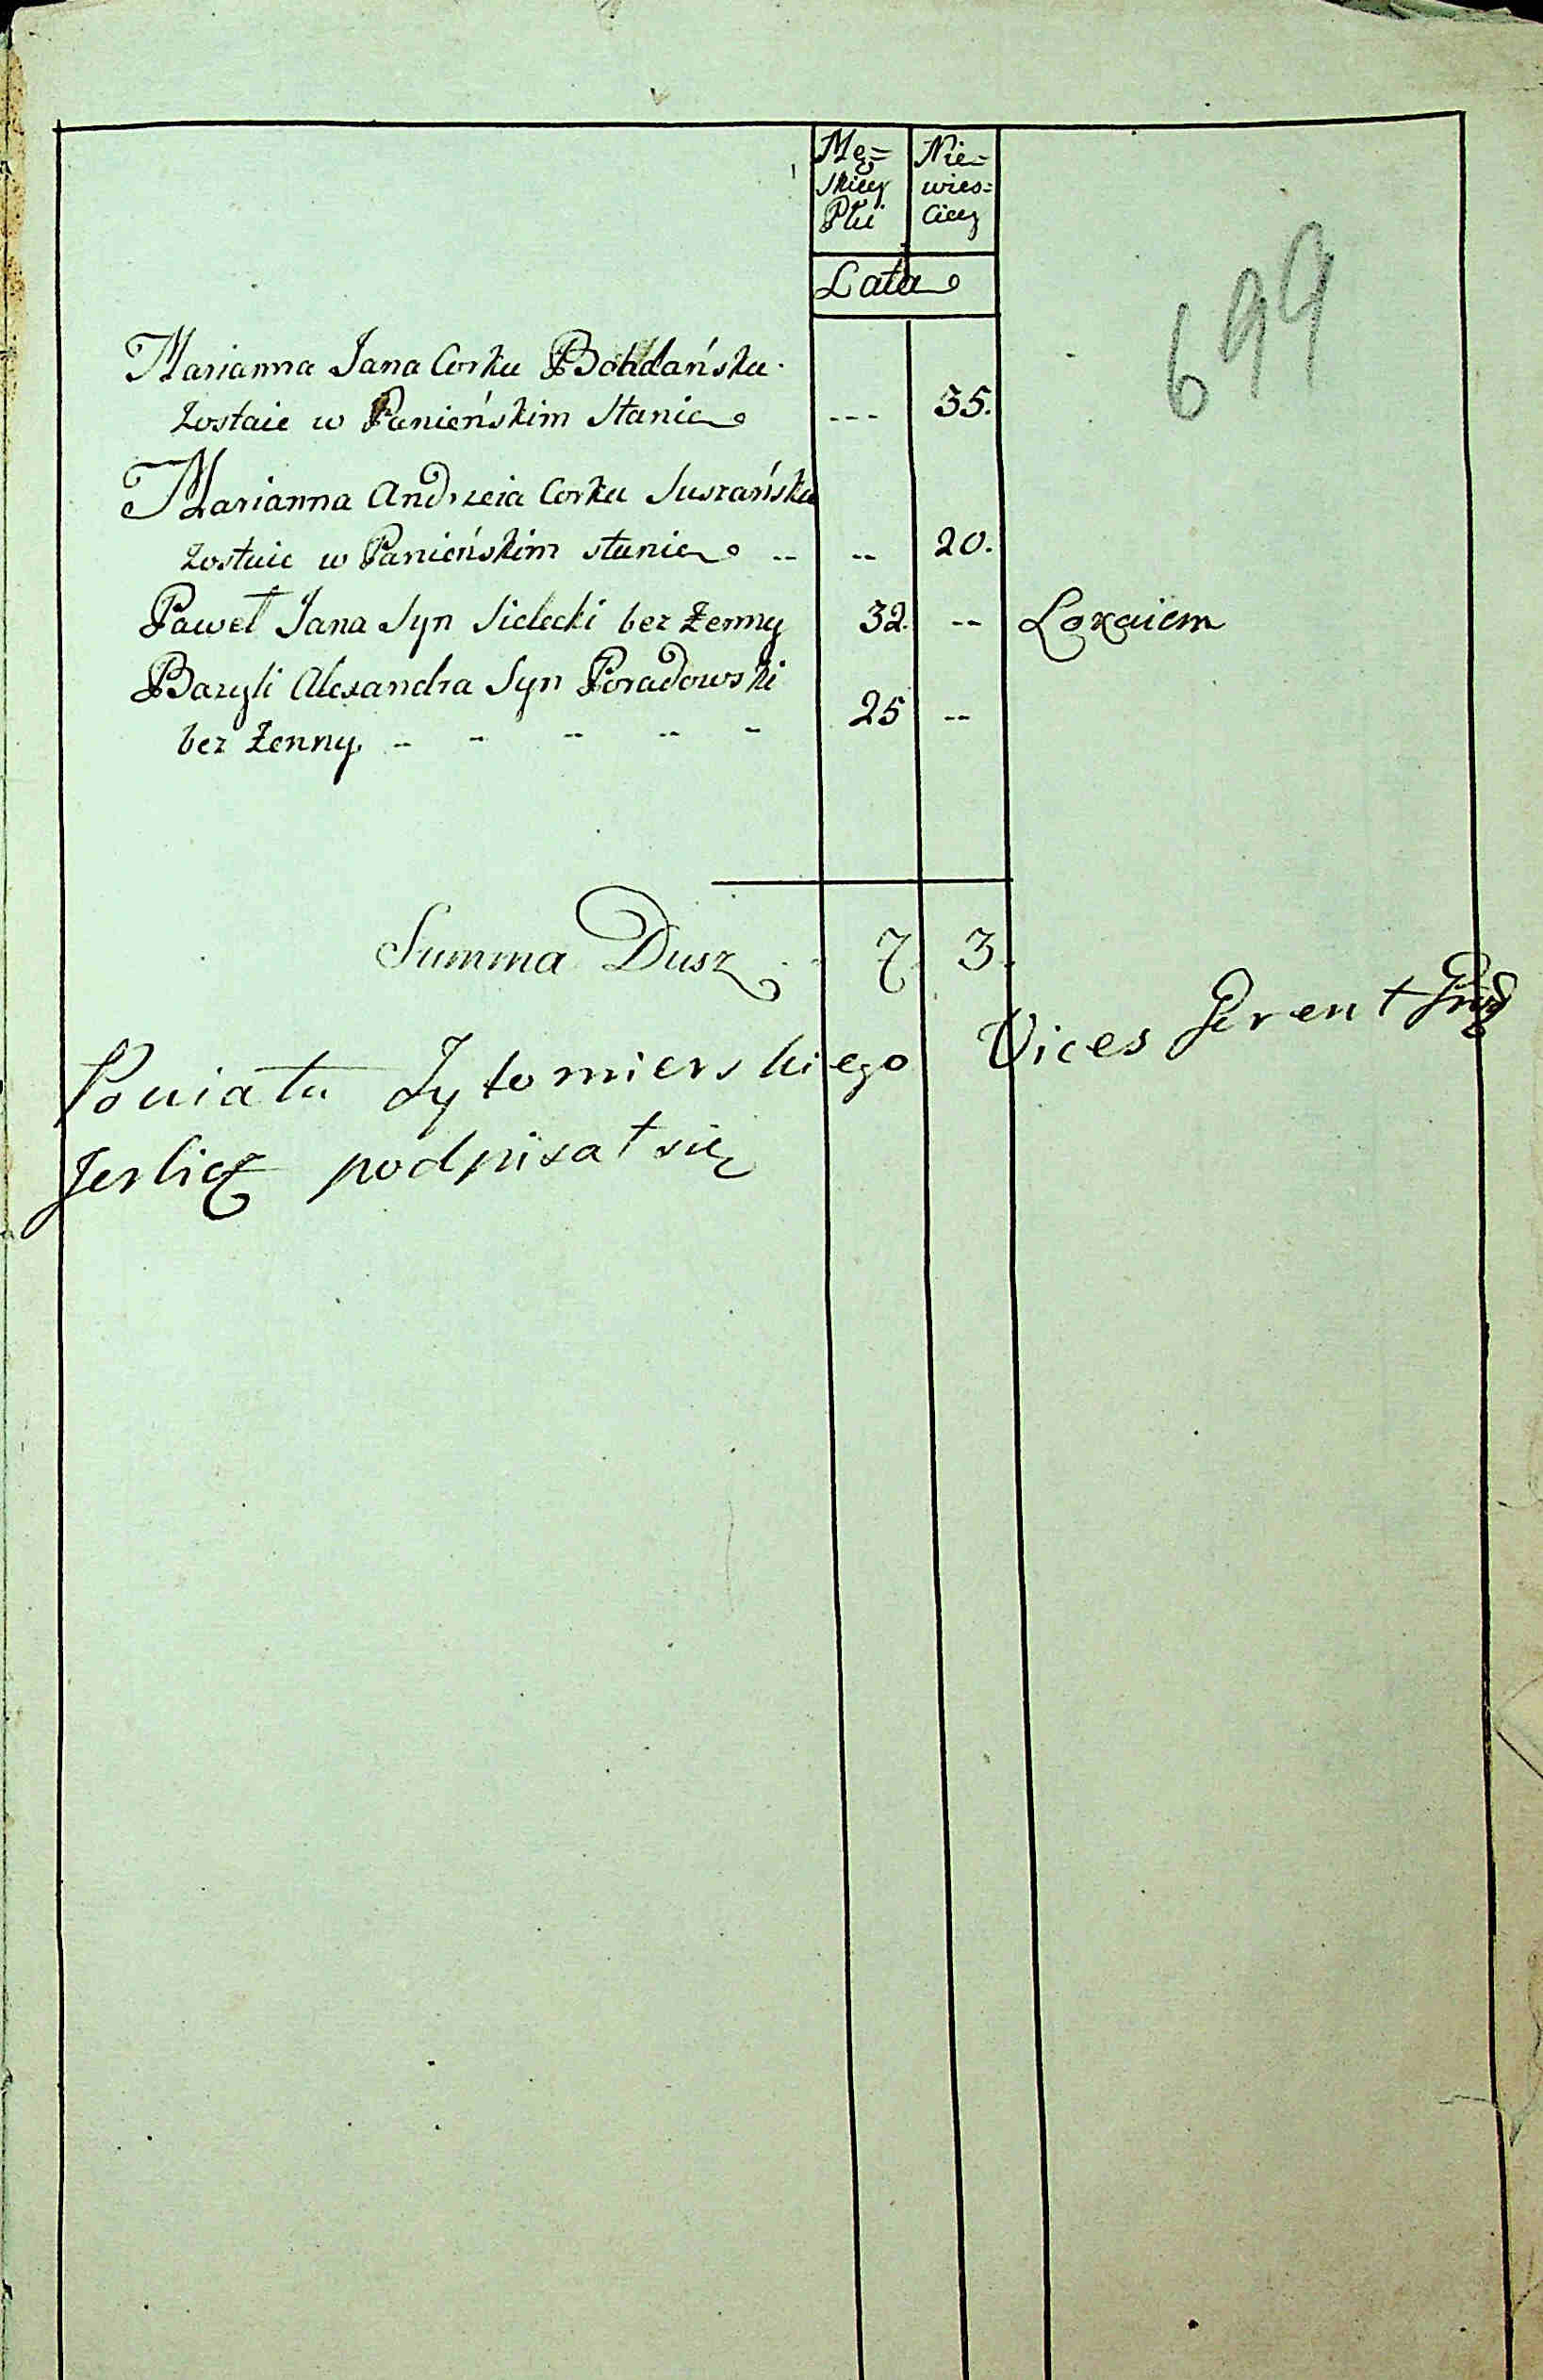 Mę=
skiey
Płci
Nie=
wies=
ciey
Lata
699
Marianna Jana Corka Bohdańska.
zostaie w Panieńskim Stanie --- 35.
Marianna Andrzeia Corka Suszańska
zostaie w Panieńskim stanie -- -- 20.
Paweł Jana Syn Sielecki bez Żenny 32. -- Lokaiem
Bazyli Alexandra Syn Poradowski
bez Żenny. - - - - - 25 --
Summa Dusz 7. 3.
Powiatu Żytomierskiego Vices Gerent
Jerlicz podpisał się